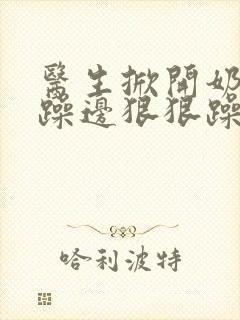 醫生掀開奶
躁邊狠狠躁
哈利波特